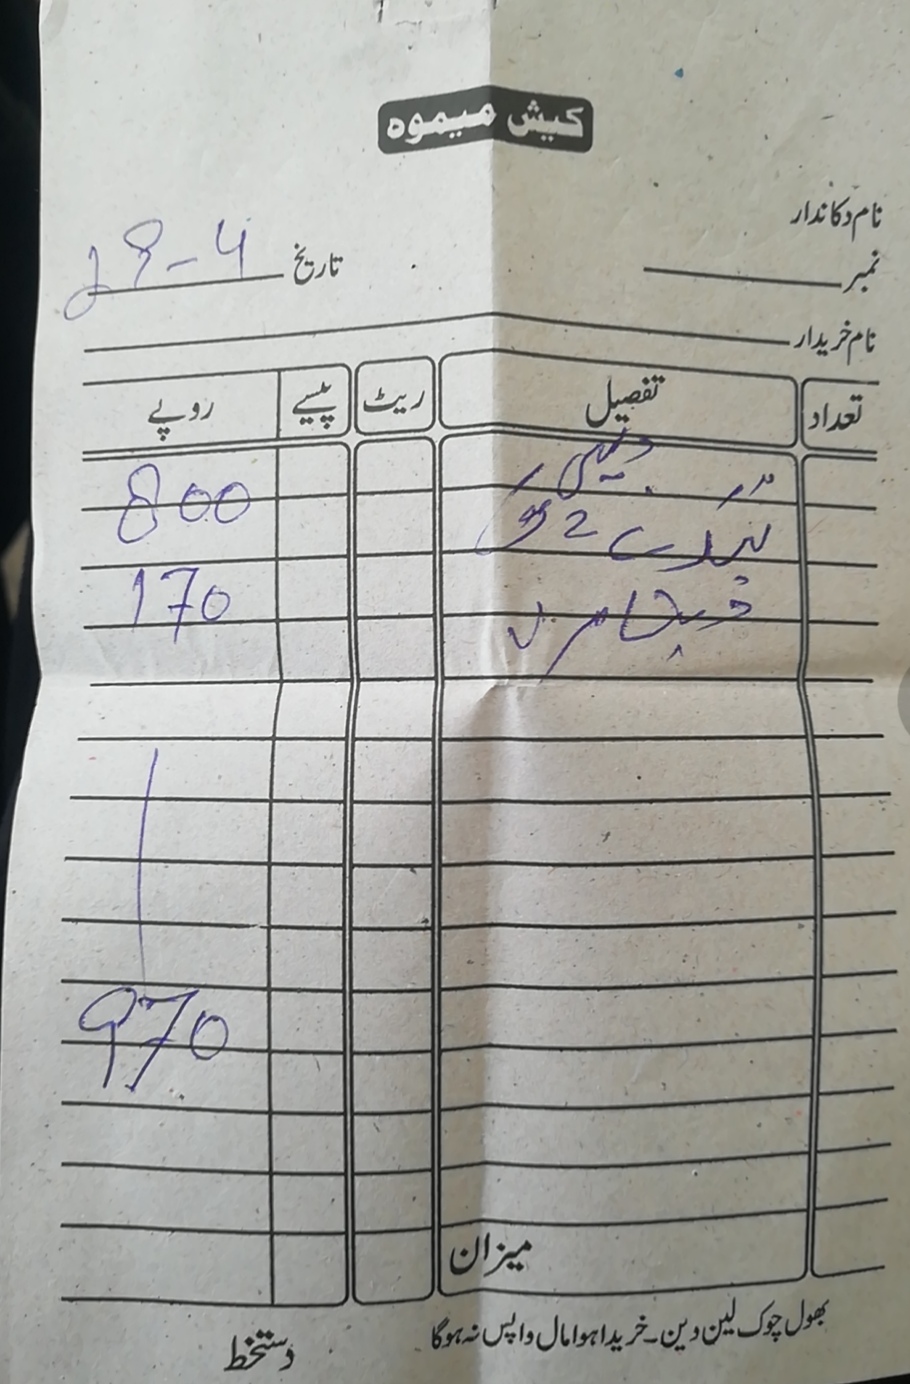 کیش میموہ
نام دکاندار
نمبر تاریخ 28-4
نام خریدار
تعداد تفصیل ریٹ پیسے روپے
800
2
170
970
میزان
بھول چوک لین دین۔ خریدا ہوا مال واپس نہ ہوگا
دستخط